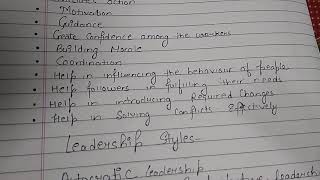 action
Motivation
Guidance
Create Confidence among the workers
Building Morale
Coordination
Help in influencing the behaviour of people
Help followers in fulfilling their needs
Help in introducing Required Changes
Help in Solving Conflicts Effectively
Leadership Styles
Autocratic leadership
leadership